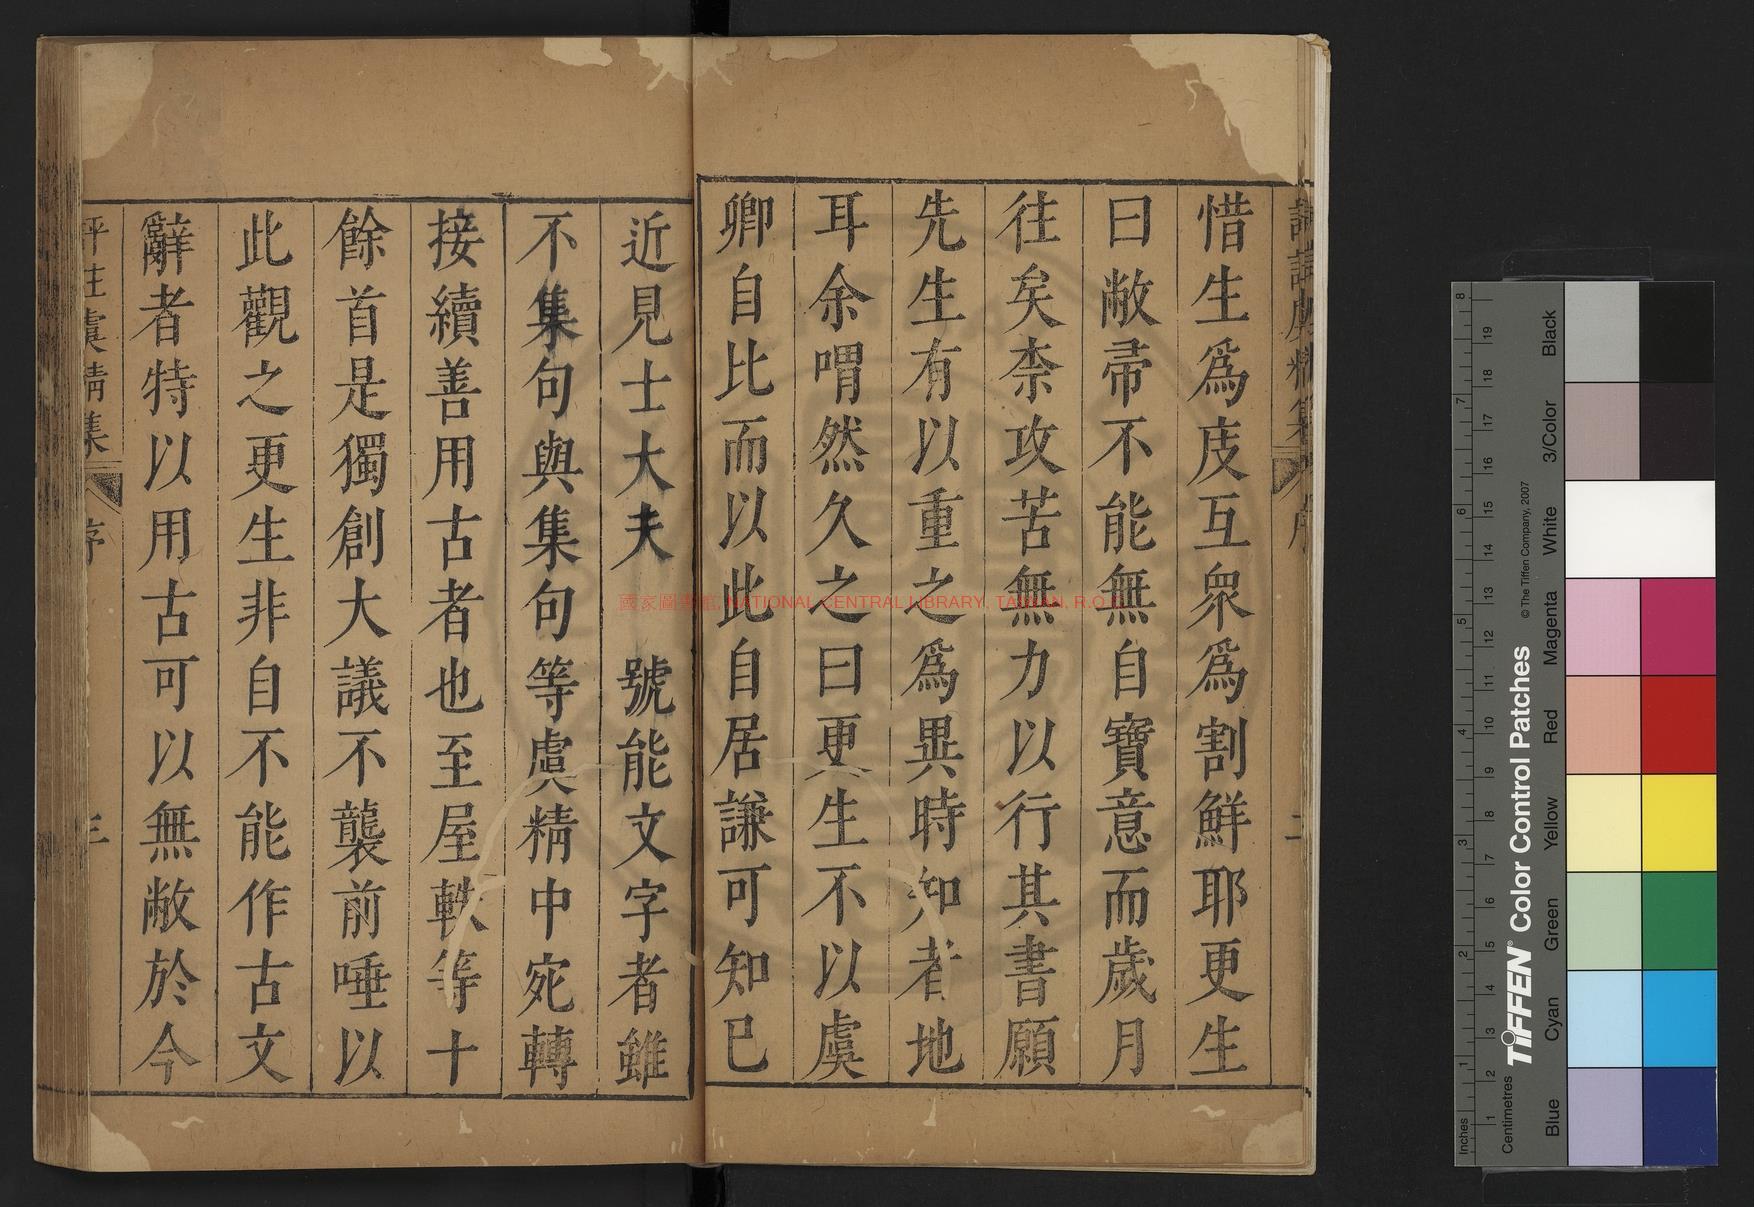 惜生為庋互衆為割鮮耶更生
曰敝帚不能無自寶意而歲月
往矣柰攻苦無力以行其書願
先生有以重之為異時知者地
耳余喟然久之曰更生不以虞
卿自比而以此自居謙可知已
近見士大夫 號能文字者雖
不集句與集句等虞精中宛轉
接續善用古者也至屋軼等十
餘首是獨創大議不襲前唾以
此觀之更生非自不能作古文
辭者特以用古可以無敝於今
評註虞精集 序 三
國家圖書館, NATIONAL CENTRAL LIBRARY, TAIWAN, R.O.C.
TIFFEN® Color Control Patches
© The Tiffen Company, 2007
Inches
1 2 3 4 5 6 7 8
Centimetres
1 2 3 4 5 6 7 8 9 10 11 12 13 14 15 16 17 18 19
Blue Cyan Green Yellow Red Magenta White 3/Color Black